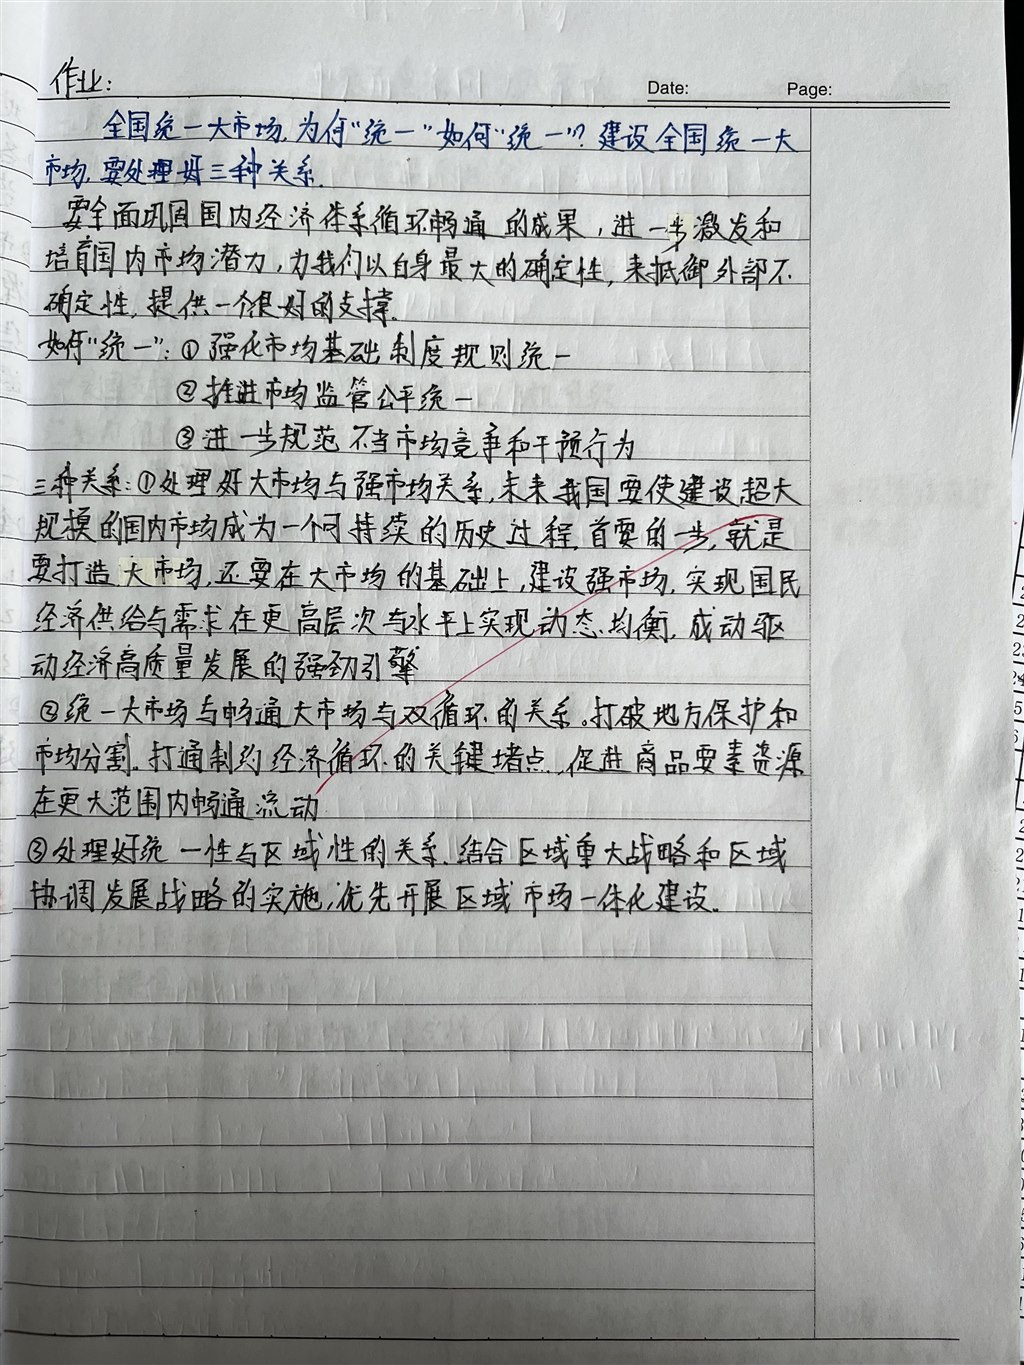 作业:
Date: Page:
全国统一大市场,为何“统一”如何“统一”？建设全国统一大
市场,要处理好三种关系.
要全面巩固国内经济体系循环畅通的成果,进一步激发和
培育国内市场潜力,为我们以自身最大的确定性,来抵御外部不
确定性,提供一个很好的支撑.
如何“统一”:①强化市场基础制度规则统一
②推进市场监管公平统一
③进一步规范不当市场竞争和干预行为
三种关系:①处理好大市场与强市场关系,未来我国要使建设超大
规模的国内市场成为一个可持续的历史过程,首要的一步,就是
要打造大市场,还要在大市场的基础上,建设强市场,实现国民
经济供给与需求在更高层次与水平上实现动态均衡,成动驱
动经济高质量发展的强劲引擎
②统一大市场与畅通大市场与双循环的关系.打破地方保护和
市场分割.打通制约经济循环的关键堵点,促进商品要素资源
在更大范围内畅通流动
③处理好统一性与区域性的关系.结合区域重大战略和区域
协调发展战略的实施,优先开展区域市场一体化建设.